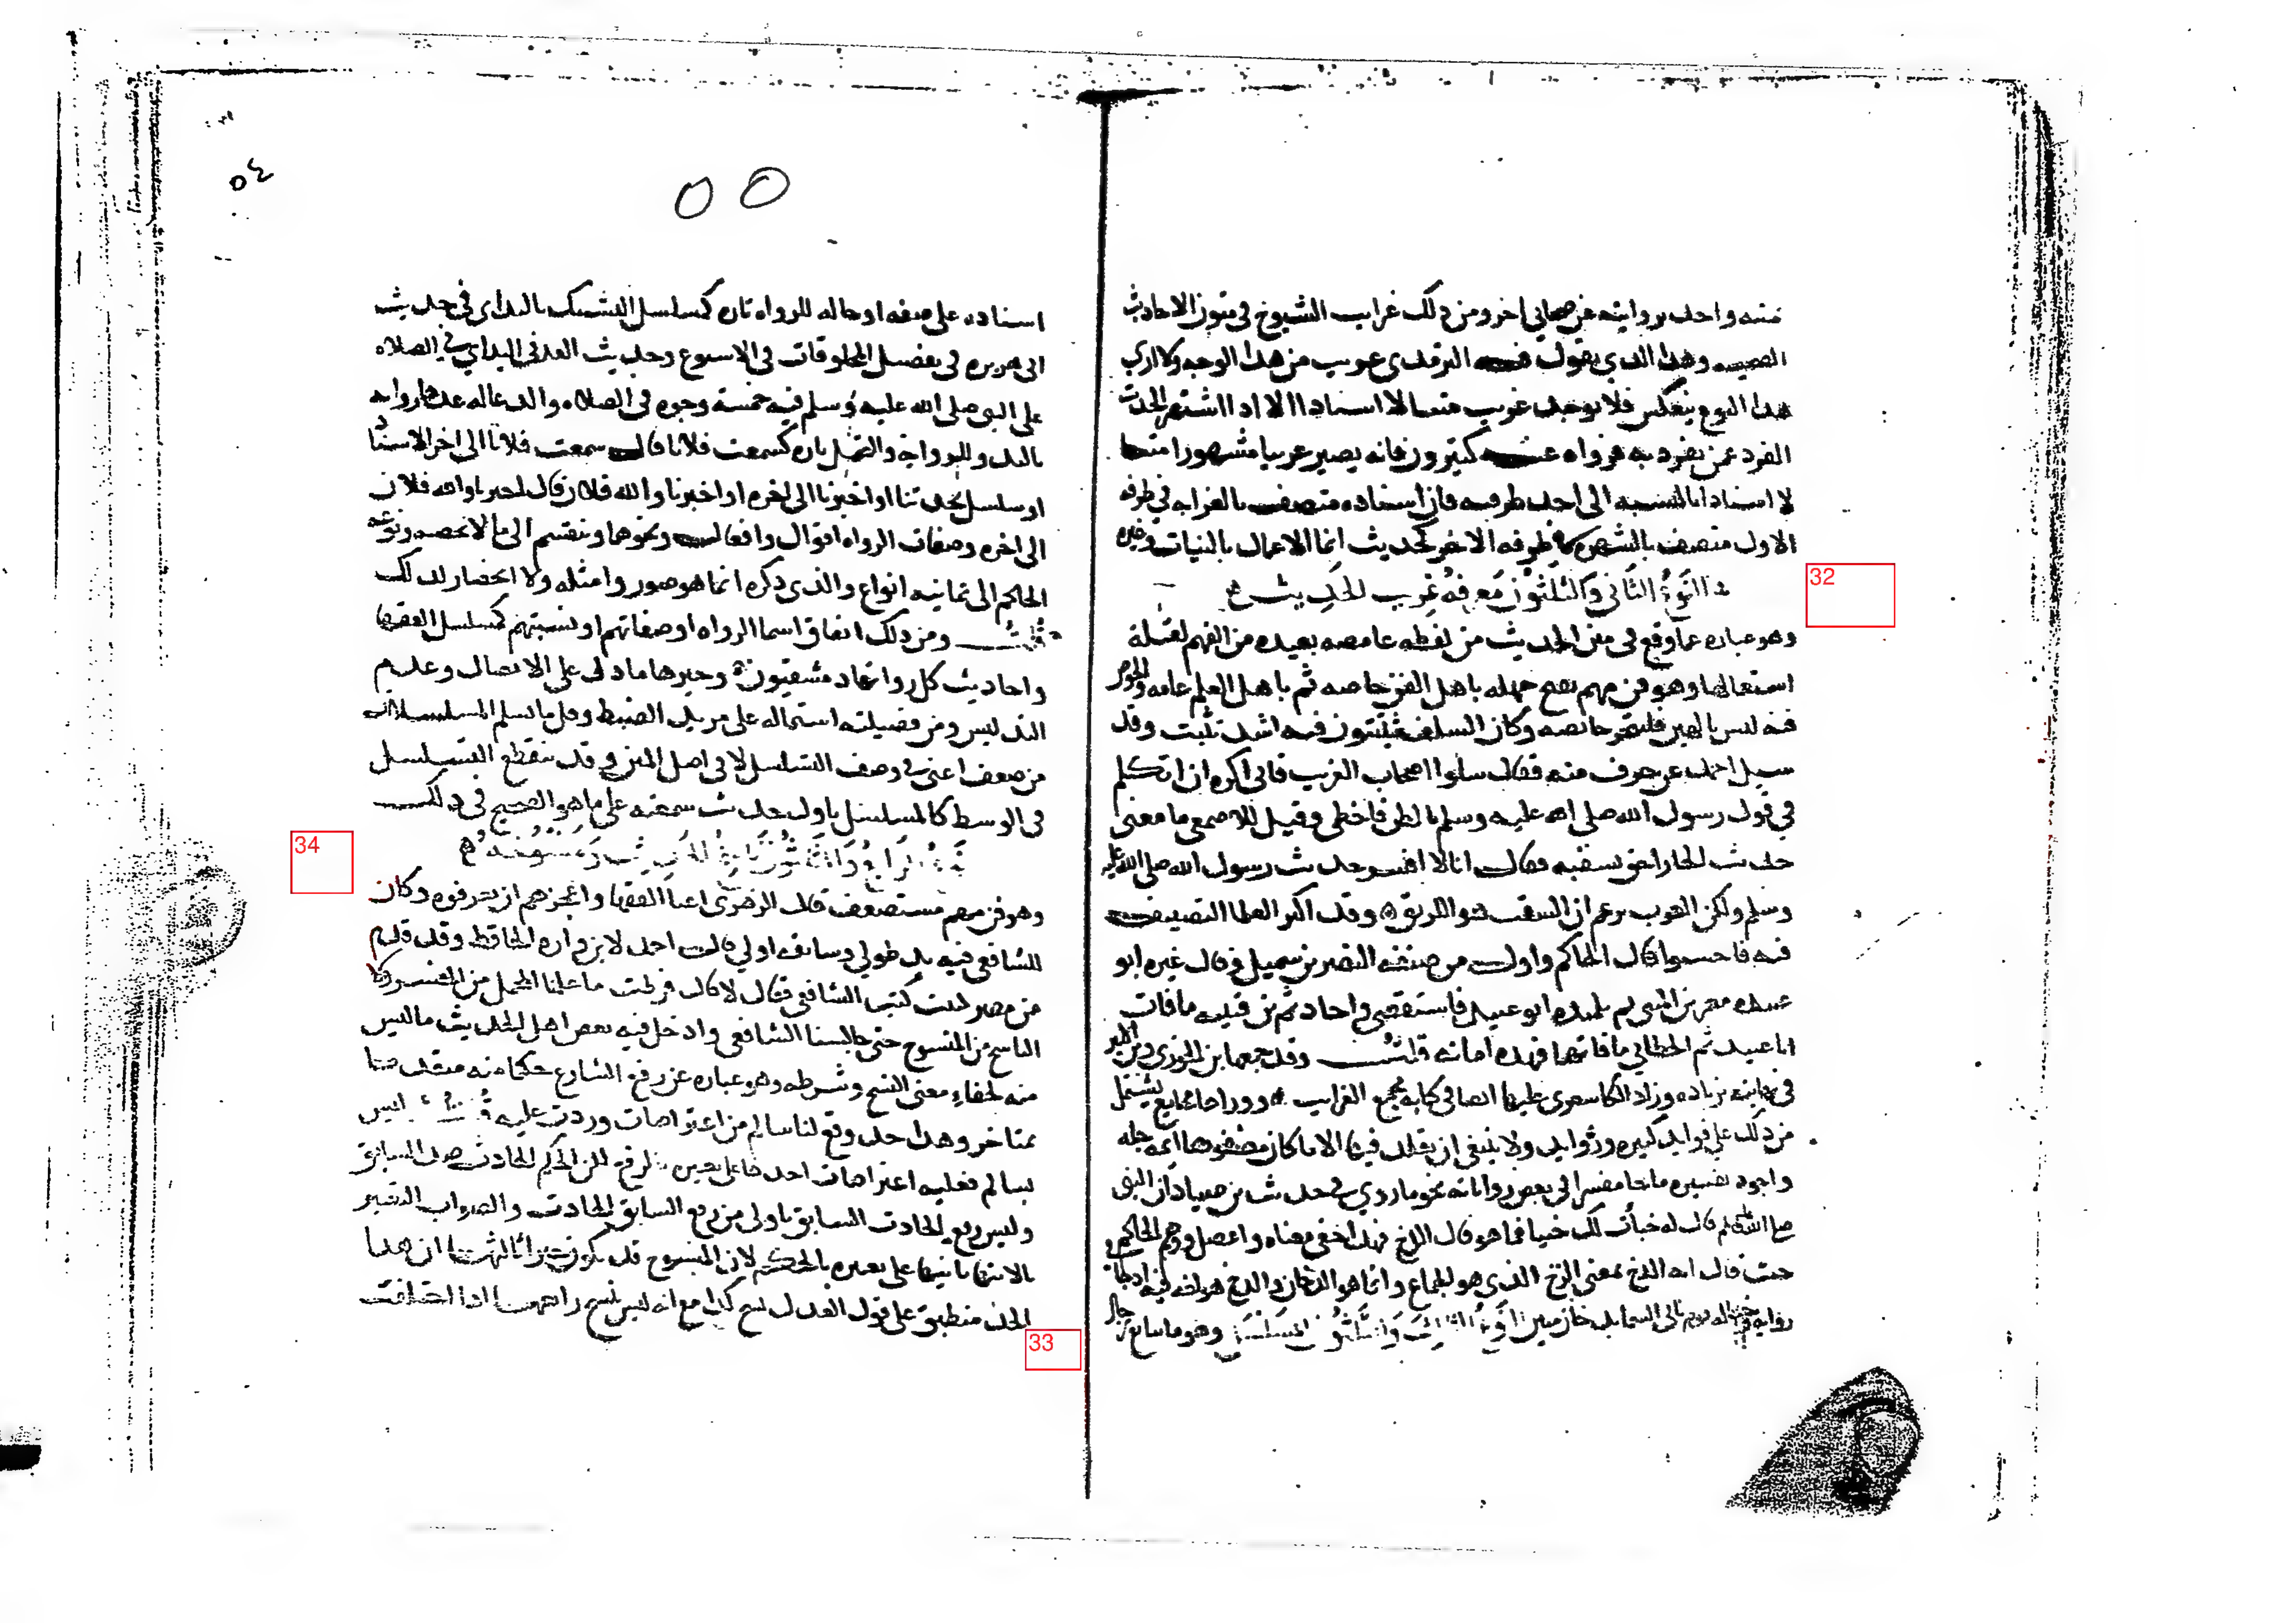 متنه واحد بروايته عن صحابي اخر ومن ذلك غرايب الشيوخ في متون الاحاديث
الصحيحه وهذا الذي يقول فيه الترمذي غريب من هذا الوجه ولا ارى
هذا النوع ينعكس فلا يوجد غريب متنا لا اسنادا الا اذا اشتهر الحديث
الفرد عمن تفرد به فرواه عنه كثيرون فانه يصير غريبا مشهورا متنا
لا اسنادا بالنسبه الى احد طرفيه فان اسناده متصف بالغرابه في طرفه
الاول متصف بالشهره في طرفه الاخر كحديث انما الاعمال بالنيات وغيره
النوع الثاني والثلثون معرفة غريب الحديث
وهو عباره عما وقع في متن الحديث من لفظه غامضه بعيده من الفهم لقلة
استعمالها وهو فن مهم يقبح جهله باهل الفن خاصه ثم باهل العلم عامه والخوض
فيه ليس بالهين فليتحر خائضه وكان السلف يثبتون فيه اشد تثبت وقد
سيل احمد عن حرف منه فقال سلوا اصحاب الغريب فاني اكره ان اتكلم
في قول رسول الله صلى الله عليه وسلم بالظن فاخطي وقيل للاصمعي ما معنى
حديث الجار احق بسقبه فقال انا لا افسر حديث رسول الله صلى الله عليه
وسلم ولكن العرب تزعم ان السقب هو اللزيق وقد اكثر العلما التصنيف
فيه فاحسنوا قال الحاكم واول من صنفه النضر بن شميل وقال غيره ابو
عبيده معمر بن المثنى ثم بلديه ابو عبيد فاستقصى واجاد ثم بن قتيبه ما فات
ابا عبيد ثم الخطابي ما فاتهما فهذه امهاته قلت وقد جمعها بن الجوزي وبن الاثير
في نهايته بزياده وزاد الكاشغري عليها ايضا في كتابه مجمع الغرايب
من ذلك على فوايد كثيره وزوايد ولا ينبغي ان يقلد فيها الا ما كان مصنفوها ائمه جله
واجود تفسيره ما جا مفسرا في بعض رواياته نحو ما روي في حديث بن صياد ان النبي
صلى الله عليه وسلم قال له خبأت لك خبيا فما هو قال الدخ فهذا خفي معناه واعضل ووهم الحاكم
حيث قال انه الدخ بمعنى الزخ الذي هو الجماع وانما هو الدخان والدخ هو لغه فيه
النوع الثالث والثلثون المسلسل وهو ما تتابع رجال
اسناده على صفه او حاله للرواه تاره كمسلسل التشبيك باليد اي في حديث
ابي هريره في تفصيل المخلوقات في الاسبوع وحديث العد في اليد اي في الصلاه
على النبي صلى الله عليه وسلم فيه خمسة وجوه في الصلاه والدعا له عدها رواته
باليد وللروايه والتحمل تاره كسمعت فلانا قال سمعت فلانا الى اخر الاسناد
او مسلسل بحدثنا او اخبرنا الى اخره او اخبرنا والله فلان قال اخبرنا والله فلان
الى اخره وصفات الرواه اقوال وافعال ونحوهما وتنقسم الى ما لا نحصيه ونوعه
الحاكم الى ثمانيه انواع والذي ذكره انما هو صور وامثله ولا انحصار لذلك
قلت ومن ذلك اتفاق اسما الرواه او صفاتهم او نسبتهم كمسلسل الفقها
واحاديث كل رواتها دمشقيون وخيرها ما دل على الاتصال وعدم
التدليس ومن فضيلته اشتماله على مزيد الضبط وقل ما تسلم المسلسلات
من ضعف اعني في وصف التسلسل لا في اصل المتن وقد ينقطع التسلسل
في الوسط كالمسلسل باول حديث سمعته على ما هو الصحيح في ذلك
النوع الرابع والثلثون ناسخ الحديث ومنسوخه
وهو فن مهم مستصعف قال الزهري اعيا الفقها واعجزهم ان يعرفوه وكان
للشافعي فيه يد طولى وسابقه اولى قال احمد لابن واره الحافظ وقد قدم
من مصر كتبت كتب الشافعي فقال لا قال فرطت ما علمنا المجمل من المفسر ولا
الناسخ من المنسوخ حتى جالسنا الشافعي وادخل فيه بعض اهل الحديث ما ليس
منه لخفاء معنى النسخ وشرطه وهو عباره عن رفع الشارع حكما منه متقدما
بمتاخر وهذا حد وقع لنا سالم من اعتراضات وردت عليه قلت ليس
بسالم فعليه اعتراضات احدها على تعبيره بالرفع لان الحكم الحادث ضد السابق
وليس رفع الحادث السابق باولى من رفع السابق الحادث والصواب التعبير
بالانتها ثانيها على تعبيره بالحكم لان المنسوخ قد يكون خبرا ثالثها ان هذا
الحد منطبق على قول العدل نسخ كذا مع انه ليس نسخ رابعها اذا اختلفت
٥٤
٥٥
32
33
34